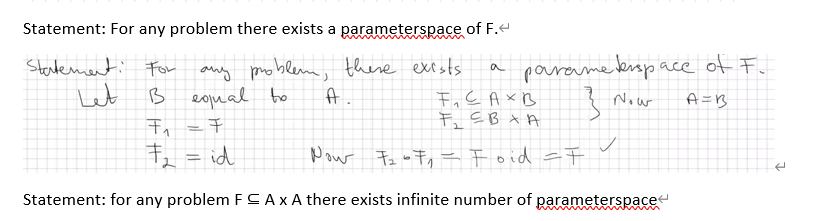 Statement: For any problem there exists a parameterspace of F.
Statement: For any problem, there exists a parameterspace of F.
Let B equal to A. F₁ ⊆ A × B } Now A = B
F₁ = F F₂ ⊆ B × A
F₂ = id Now F₂ ∘ F₁ = F ∘ id = F ✓
Statement: for any problem F ⊆ A x A there exists infinite number of parameterspace